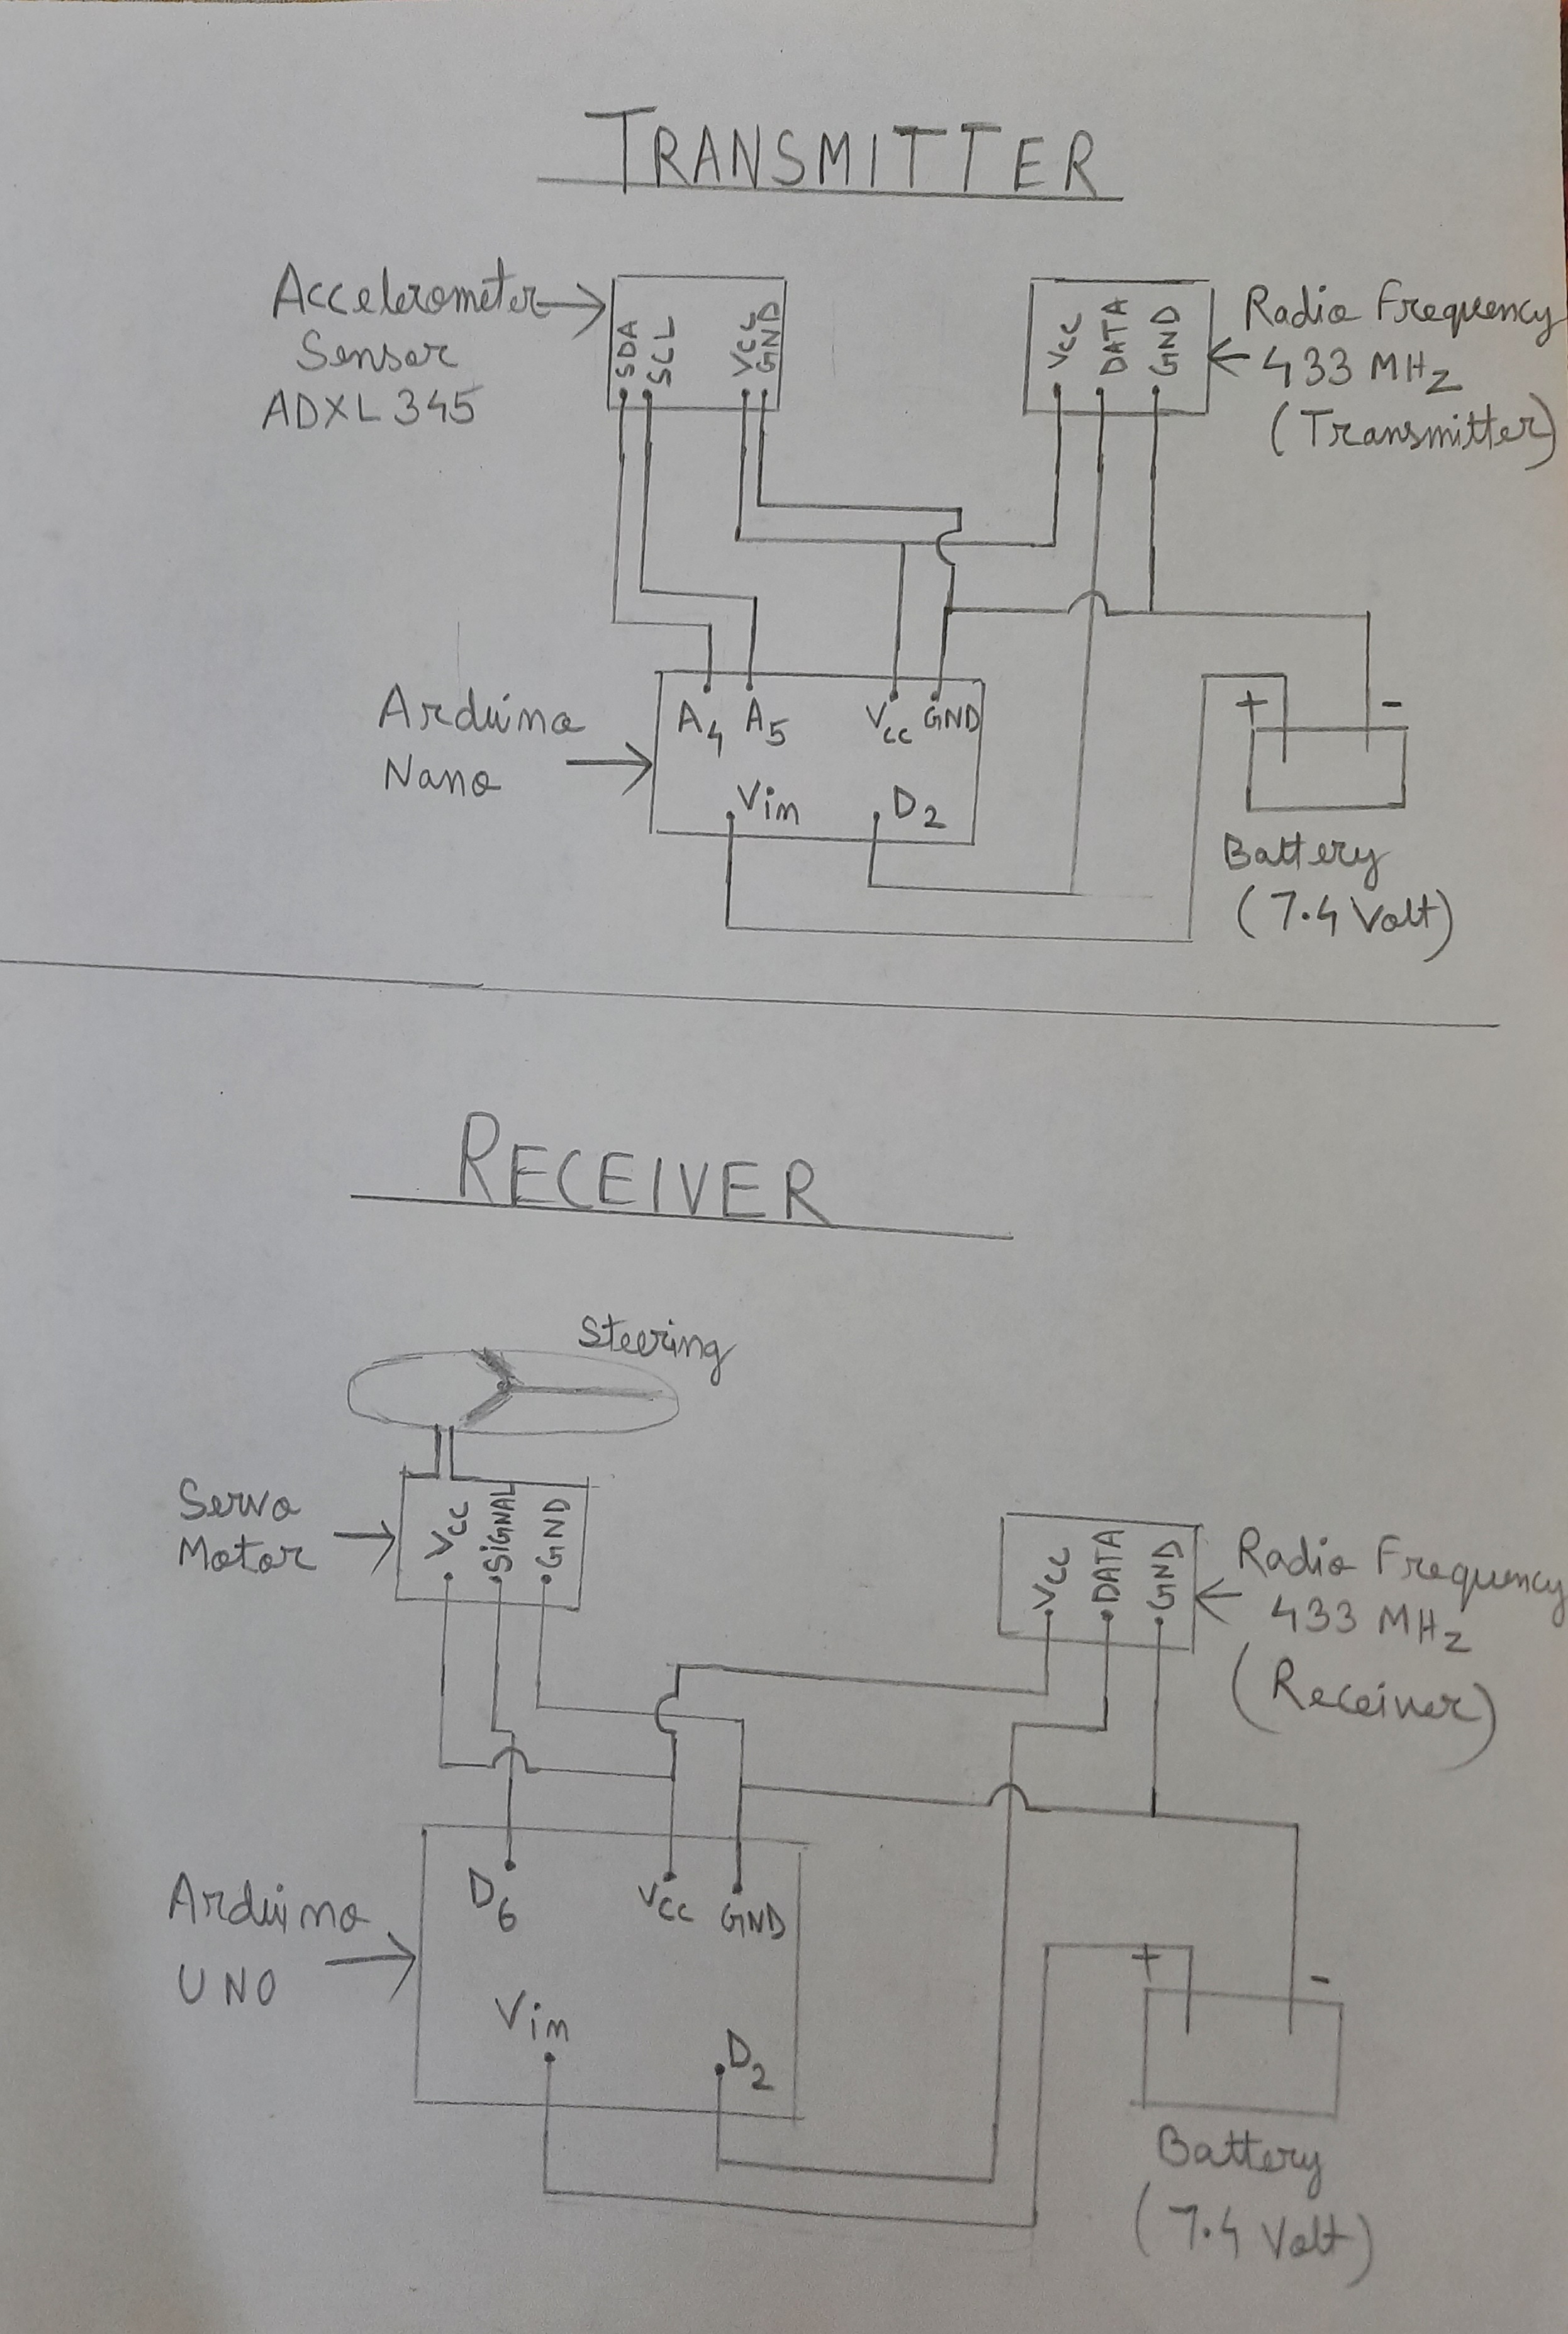 TRANSMITTER
Accelerometer
Sensor
ADXL345
SDA
SCL
VCC
GND
VCC
DATA
GND
Radio Frequency
433 MHz
(Transmitter)
Arduino
Nano
A4 A5
Vcc GND
Vin
D2
+
-
Battery
(7.4 Volt)
RECEIVER
Steering
Servo
Motor
VCC
SIGNAL
GND
VCC
DATA
GND
Radio Frequency
433 MHz
(Receiver)
Arduino
UNO
D6
VCC
GND
Vin
D2
+
-
Battery
(7.4 Volt)